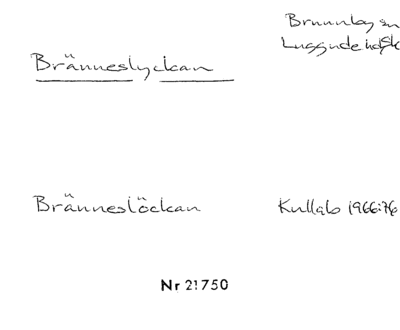 Bränneslyckan
Brunnby sn
Luggude hd Sk
Bränneslöckan
Kullab 1966:76
Nr 21750